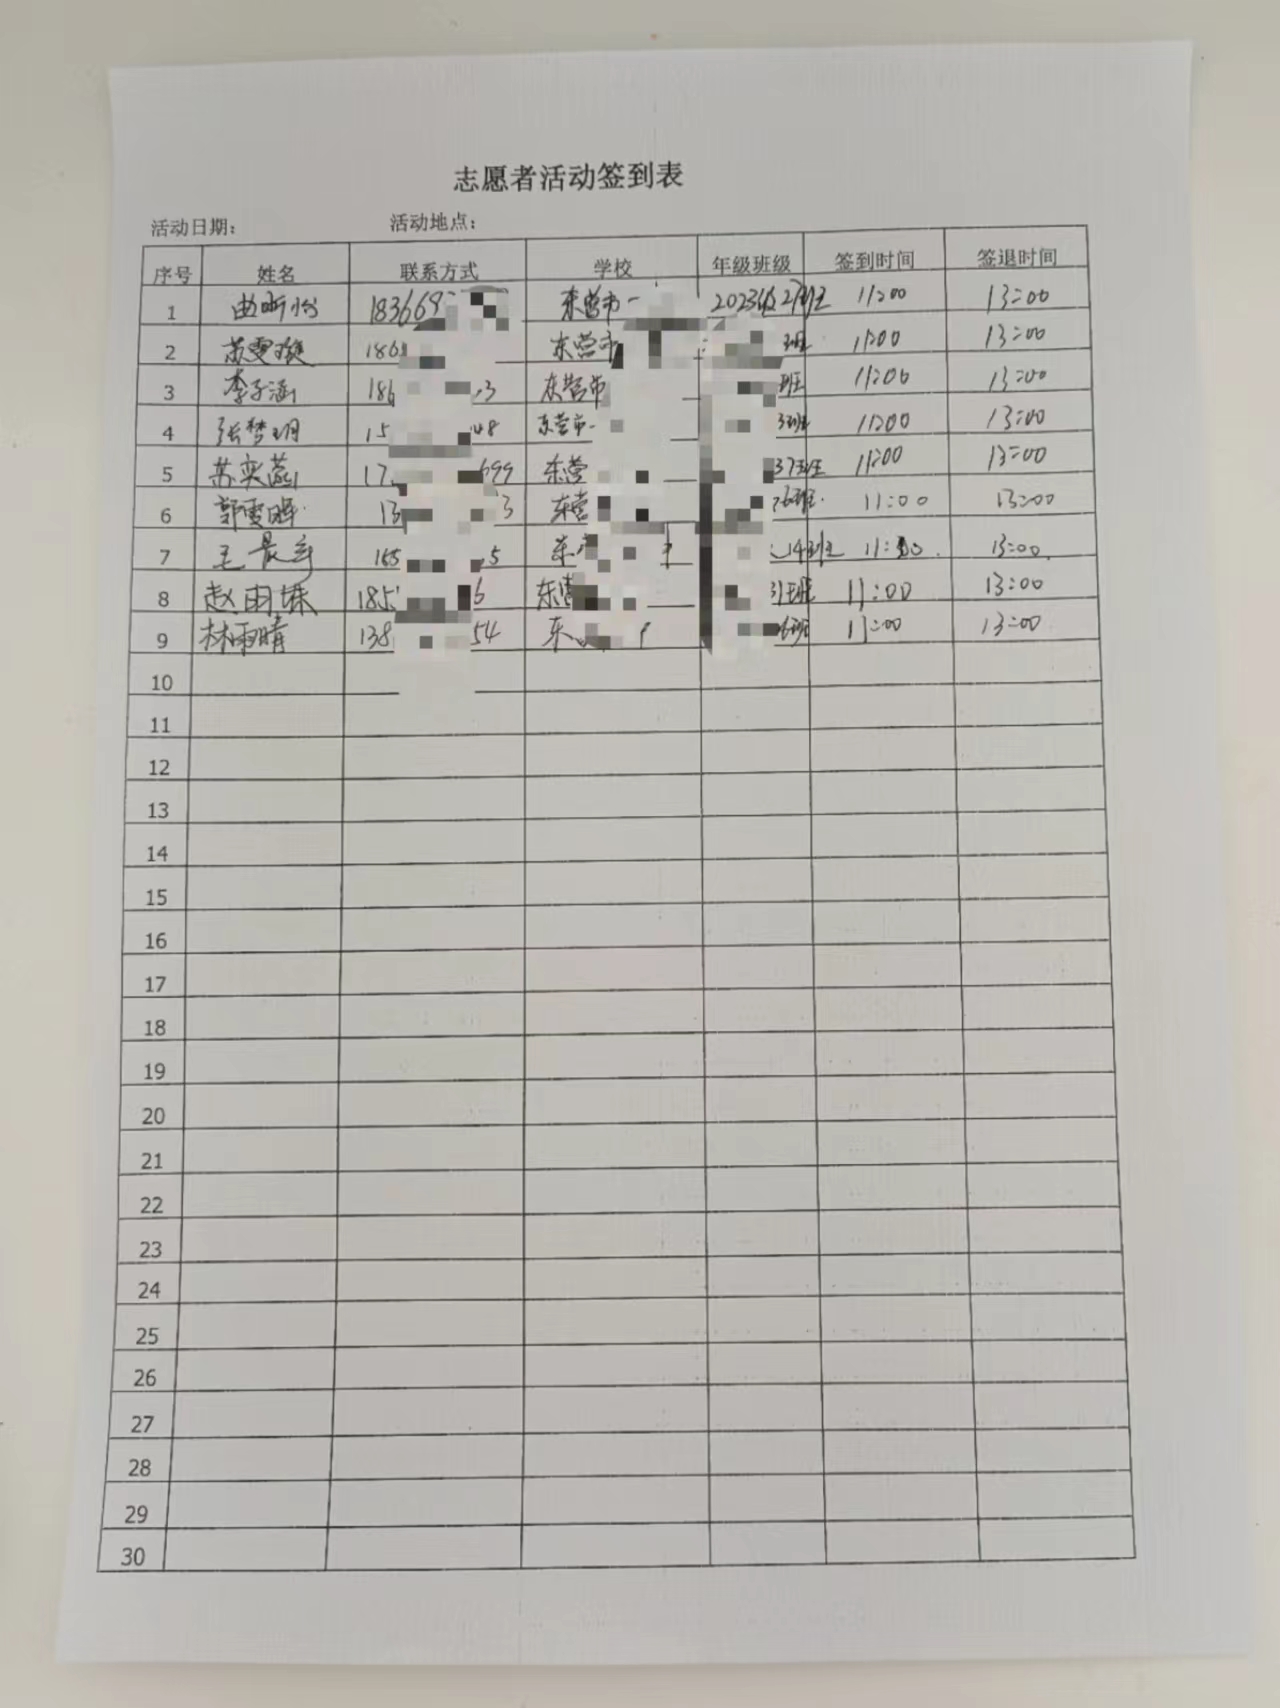 志愿者活动签到表
活动日期： 活动地点：
序号 姓名 联系方式 学校 年级班级 签到时间 签退时间
1 曲昕怡 183669 东营市一 2023级27班 11:00 13:00
2 苏雯璇 186 东营市 班 11:00 13:00
3 李子涵 186 3 东营市 班 11:00 13:00
4 张梦玥 15 48 东营市一 3班 11:00 13:00
5 苏奕蕊 17 699 东营 37班 11:00 13:00
6 郭雯晖 13 3 东营 6班 11:00 13:00
7 王 165 5 东 14班 11:00 13:00
8 赵雨姝 185 6 东营 31班 11:00 13:00
9 林雨晴 138 54 东 6班 11:00 13:00
10
11
12
13
14
15
16
17
18
19
20
21
22
23
24
25
26
27
28
29
30